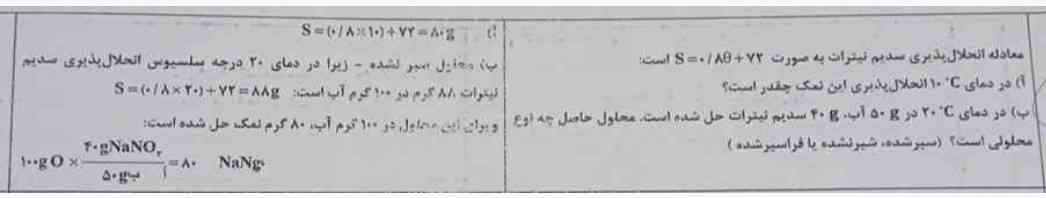 معادله انحلال‌پذیری سدیم نیترات به صورت S=۰/۸θ+۷۲ است:
آ) در دمای ۱۰°C انحلال‌پذیری این نمک چقدر است؟
ب) در دمای ۲۰°C در ۵۰ g آب، ۴۰ g سدیم نیترات حل شده است. محلول حاصل چه نوع
محلولی است؟ (سیرشده، سیرنشده یا فراسیرشده)
آ) S=(۰/۸×۱۰)+۷۲=۸۰g
ب) محلول سیر نشده - زیرا در دمای ۲۰ درجه سلسیوس انحلال‌پذیری سدیم
نیترات ۸۸ گرم در ۱۰۰ گرم آب است: S=(۰/۸×۲۰)+۷۲=۸۸g
و برای این محلول در ۱۰۰ گرم آب، ۸۰ گرم نمک حل شده است:
۱۰۰g O × ۴۰gNaNO۳ / ۵۰gآب = ۸۰ NaNg